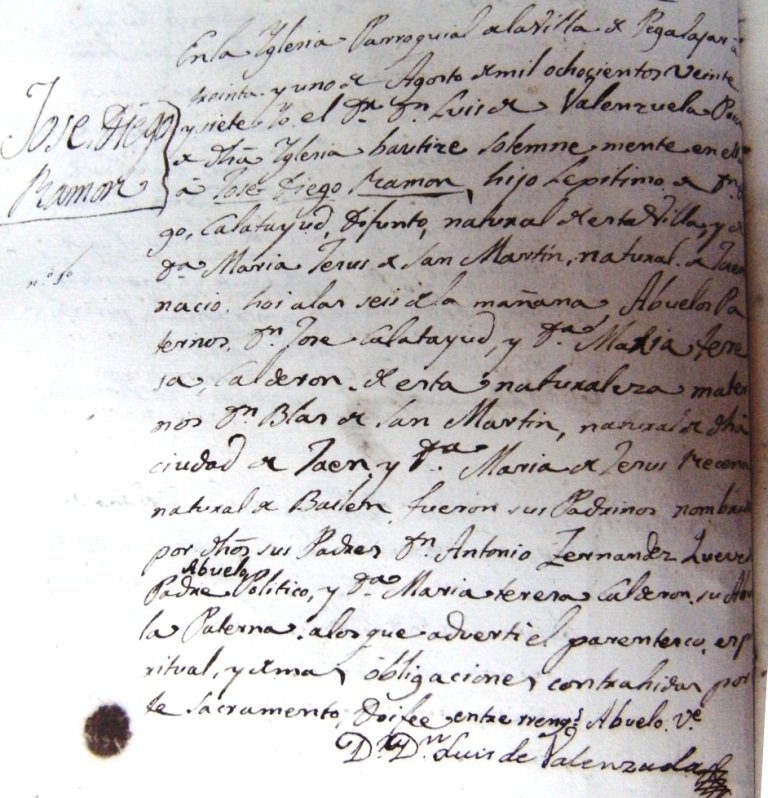 Jose, Diego
Ramon
En la Yglesia Parroquial de la Villa de Pegalajar à
treinta y uno de Agosto de mil ochocientos veinte
y siete Yo el Dr. Dn. Luis de Valenzuela
de dha Yglesia bautize solemne mente en ella
à Josè Diego Ramon, hijo Legitimo de Dn.
go, Calatayud, difunto, natural de esta Villa, y de
Da. Maria Jesus de San Martin, natural de Jaen
nacio hoi a las seis de la mañana, Abuelos Pa
ternos, Dn. Jose Calatayud, y Da. Maria Tere
sa, Calderon de esta naturaleza mater
nos Dn. Blas de San Martin, natural de dha
ciudad de Jaen, y Da. Maria de Jesus
natural de Bailen fueron sus Padrinos nombra
por dhos sus Padres Dn. Antonio Fernandez
Abuelo
Padre Politico, y Da. Maria teresa Calderon su Abue
la Paterna, a los que adverti el parentesco, esp
ritual, y demas obligaciones contrahidas por
te Sacramento, doi fee entre rreng.s Abuelo Ve
Dr. Dn. Luis de Valenzuela